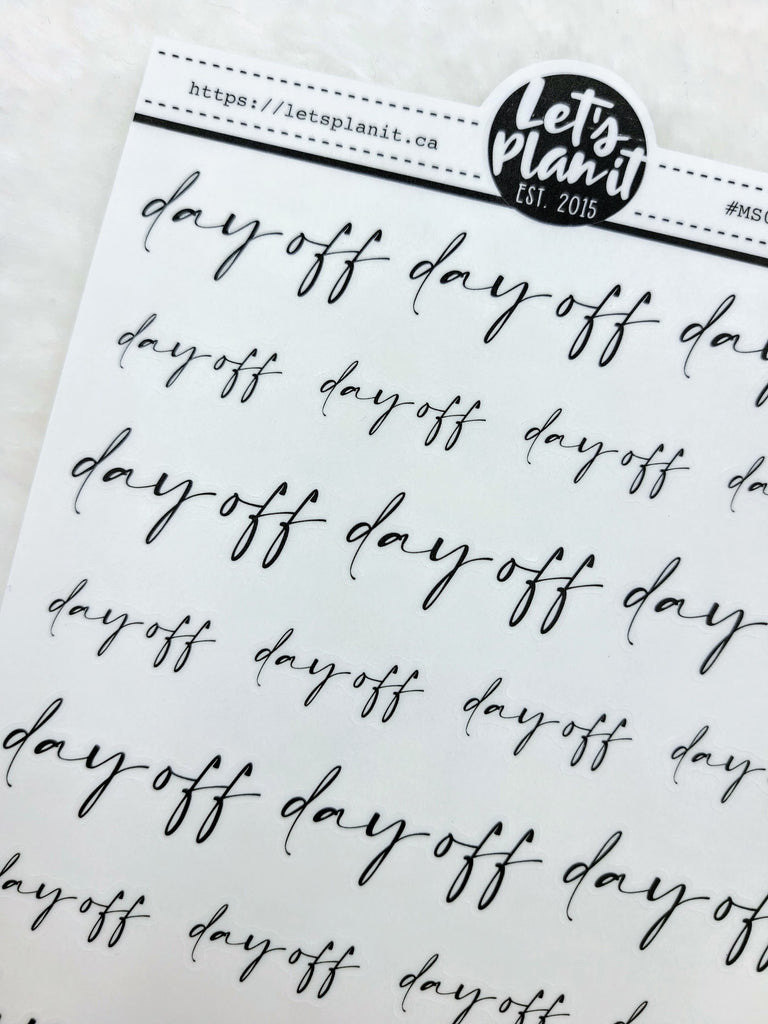 https://letsplanit.ca
Let's
Plan it
EST. 2015
day off day off day
day off day off day off
day off day off day
day off day off day off day
day off day off day
day off day off day off